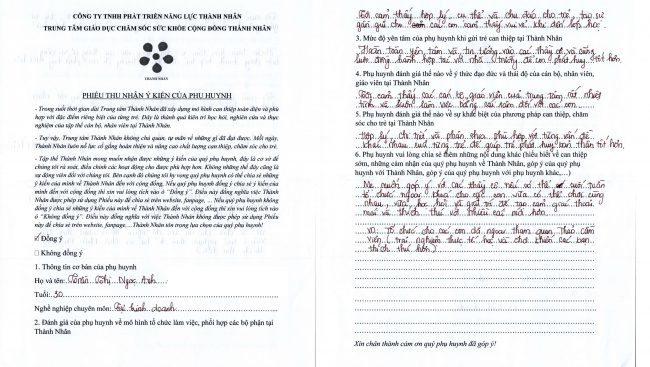 CÔNG TY TNHH PHÁT TRIỂN NĂNG LỰC THÀNH NHÂN
TRUNG TÂM GIÁO DỤC CHĂM SÓC SỨC KHỎE CỘNG ĐỒNG THÀNH NHÂN
THÀNH NHÂN
PHIẾU THU NHẬN Ý KIẾN CỦA PHỤ HUYNH
- Trong suốt thời gian dài Trung tâm Thành Nhân đã xây dựng mô hình can thiệp toàn diện và phù
hợp với đặc điểm riêng biệt của từng trẻ. Đây là thành quả kiên trì học hỏi, nghiên cứu và thực
nghiệm của tập thể cán bộ, nhân viên tại Thành Nhân.
- Tuy vậy, Trung tâm Thành Nhân không chủ quan, tự mãn về những gì đã đạt được. Mỗi ngày,
Thành Nhân luôn nỗ lực cố gắng hoàn thiện và nâng cao chất lượng can thiệp, chăm sóc cho trẻ.
- Tập thể Thành Nhân mong muốn nhận được những ý kiến của quý phụ huynh, đây là cơ sở để
chúng tôi rà soát, điều chỉnh các hoạt động cho được phù hợp hơn. Không những thế đây cũng là
sự động viên đối với chúng tôi. Bên cạnh đó chúng tôi hy vọng quý phụ huynh có thể chia sẻ những
ý kiến của mình về Thành Nhân đến với cộng đồng. Nếu quý phụ huynh đồng ý chia sẻ ý kiến của
mình đến với cộng đồng thì xin vui lòng tích vào ô "Đồng ý". Điều này đồng nghĩa với việc Thành
Nhân được phép sử dụng Phiếu này để chia sẻ trên website, fanpage, ... Nếu quý phụ huynh không
đồng ý chia sẻ những ý kiến của mình về Thành Nhân đến với cộng đồng thì xin vui lòng tích vào
ô "Không đồng ý". Điều này đồng nghĩa với việc Thành Nhân không được phép sử dụng Phiếu
này để chia sẻ trên website, fanpage,... Thành Nhân tôn trọng lựa chọn của quý phụ huynh!
Đồng ý
Không đồng ý
1. Thông tin cơ bản của phụ huynh
Họ và tên: Trần Thị Ngọc Anh
Tuổi: 30
Nghề nghiệp chuyên môn: Tự kinh doanh
2. Đánh giá của phụ huynh về mô hình tổ chức làm việc, phối hợp các bộ phận tại
Thành Nhân
Tôi cảm thấy hợp lý, cụ thể và chu đáo cho trẻ, tạo sự
gần gũi cho các con cảm thấy vui vẻ khi đến lớp học.
3. Mức độ yên tâm của phụ huynh khi gửi trẻ can thiệp tại Thành Nhân
Hoàn toàn yên tâm và tin tưởng vào các thầy cô và cũng
luôn đồng hành hợp tác với nhà trường để con phát huy tốt hơn.
4. Phụ huynh đánh giá thế nào về ý thức đạo đức và thái độ của cán bộ, nhân viên,
giáo viên tại Thành Nhân
Tôi cảm thấy các cán bộ giáo viên của trung tâm rất nhiệt
tình và luôn làm việc bằng cái tâm đối với các con.
5. Phụ huynh đánh giá thế nào về sự khác biệt của phương pháp can thiệp, chăm
sóc cho trẻ tại Thành Nhân
Hợp lý, chi tiết và phân chia phù hợp với từng vấn đề
khác nhau của từng trẻ để giúp trẻ phát huy bản thân tốt hơn.
6. Phụ huynh vui lòng chia sẻ thêm những nội dung khác (hiểu biết về can thiệp
sớm, những cảm nhận của quý phụ huynh về Thành Nhân, góp ý của quý phụ
huynh với Thành Nhân, góp ý của quý phụ huynh với phụ huynh khác,...)
Mẹ muốn góp ý với các thầy cô nếu có thể cuối tuần
tổ chức ngoại khóa cho các con vừa có thể chơi cùng
nhau, vừa học hỏi và giải trí để tạo cảm giác thoải
mái và thích thú với nhiều cái mới hơn.
VD: Tổ chức cho các con đi ngoại tham quan, Thảo cầm
viên (trải nghiệm thực tế học và chơi khiến các bạn
thích thú hơn)
Xin chân thành cảm ơn quý phụ huynh đã góp ý!